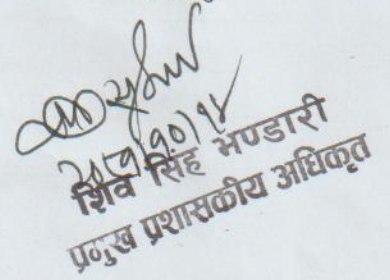 २०८१/१०/१४
शिव सिंह भण्डारी
प्रमुख प्रशासकीय अधिकृत